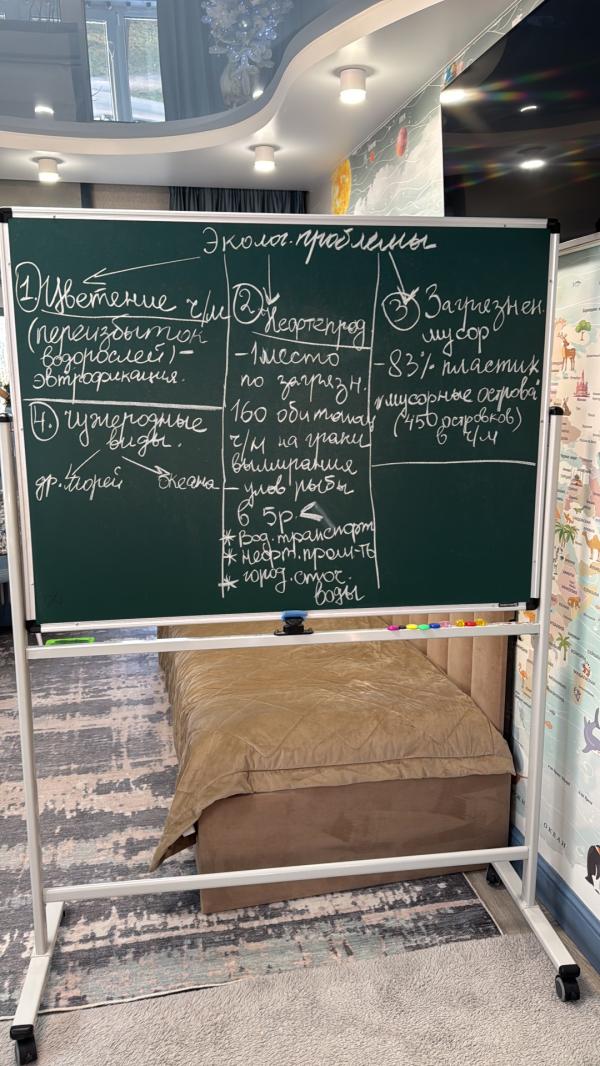 Эколог. проблемы
1. Цветение ч/м
(переизбыток
водорослей) -
эвтрофикация.
4. Чужеродные
виды.
др. морей океана
2 Нефтепрод
- 1 место
по загрязн.
160 обитател
ч/м на грани
вымирания
- улов рыбы
в 5р. <
* Вод. транспорт
* нефт. пром-ть
* город. сточ.
воды
3 Загрязнен.
мусор
- 83% пластик
"мусорные острова"
(450 островков)
в ч/м
ОКЕАН